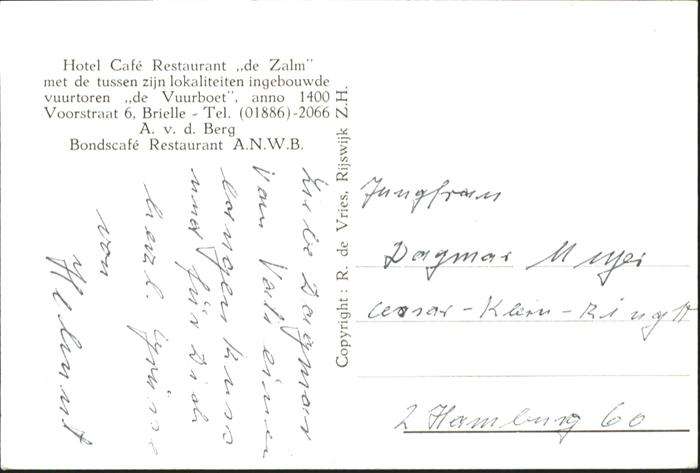 Hotel Café Restaurant „de Zalm"
met de tussen zijn lokaliteiten ingebouwde
vuurtoren „de Vuurboet", anno 1400
Voorstraat 6, Brielle - Tel. (01886)-2066
A. v. d. Berg
Bondscafé Restaurant A.N.W.B.
Copyright : R. de Vries, Rijswijk Z.H.
Liebe Dagmar
Vom Vati einen
langen Kuss
und für Dich
herzl. Grüsse
von
Helmut
Jungfrau
Dagmar Meyer
Cesar-Klein-Ring
2 Hamburg 60